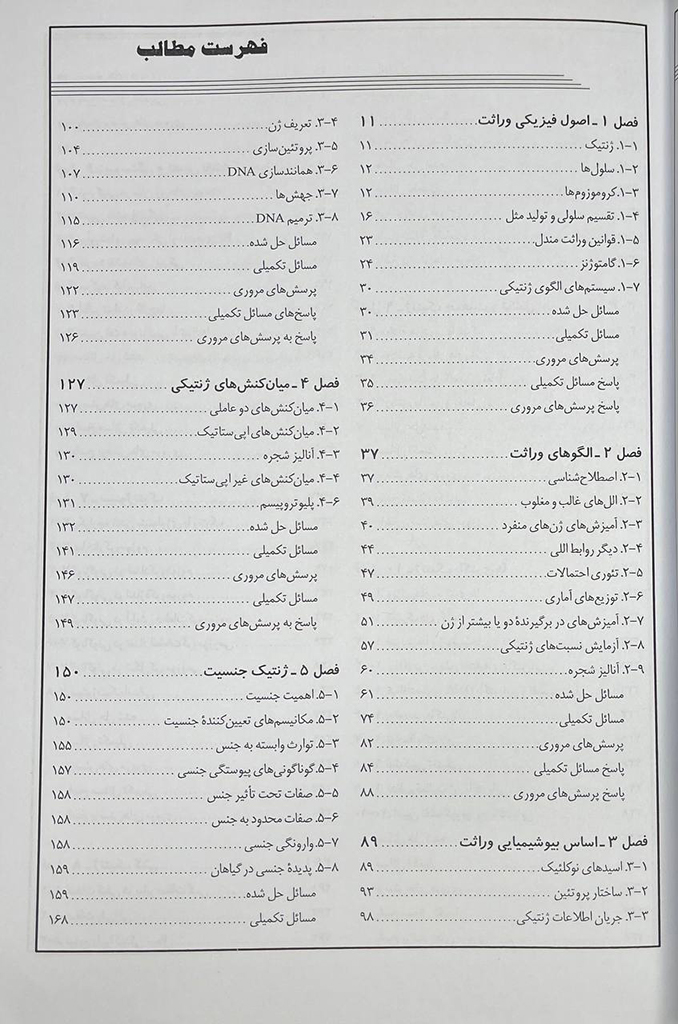 فهرست مطالب
فصل ۱ ـ اصول فیزیکی وراثت ........ ۱۱
۱-۱. ژنتیک ........ ۱۱
۱-۲. سلول‌ها ........ ۱۲
۱-۳. کروموزوم‌ها ........ ۱۲
۱-۴. تقسیم سلولی و تولید مثل ........ ۱۶
۱-۵. قوانین وراثت مندل ........ ۲۳
۱-۶. گامتوژنز ........ ۲۴
۱-۷. سیستم‌های الگوی ژنتیکی ........ ۳۰
مسائل حل شده ........ ۳۰
مسائل تکمیلی ........ ۳۱
پرسش‌های مروری ........ ۳۴
پاسخ مسائل تکمیلی ........ ۳۵
پاسخ پرسش‌های مروری ........ ۳۶
فصل ۲ ـ الگوهای وراثت ........ ۳۷
۲-۱. اصطلاح‌شناسی ........ ۳۷
۲-۲. الل‌های غالب و مغلوب ........ ۳۹
۲-۳. آمیزش‌های ژن‌های منفرد ........ ۴۰
۲-۴. دیگر روابط اللی ........ ۴۴
۲-۵. تئوری احتمالات ........ ۴۷
۲-۶. توزیع‌های آماری ........ ۴۹
۲-۷. آمیزش‌های در برگیرندهٔ دو یا بیشتر از ژن ........ ۵۱
۲-۸. آزمایش نسبت‌های ژنتیکی ........ ۵۷
۲-۹. آنالیز شجره ........ ۶۰
مسائل حل شده ........ ۶۱
مسائل تکمیلی ........ ۷۴
پرسش‌های مروری ........ ۸۲
پاسخ مسائل تکمیلی ........ ۸۴
پاسخ پرسش‌های مروری ........ ۸۸
فصل ۳ ـ اساس بیوشیمیایی وراثت ........ ۸۹
۳-۱. اسیدهای نوکلئیک ........ ۸۹
۳-۲. ساختار پروتئین ........ ۹۳
۳-۳. جریان اطلاعات ژنتیکی ........ ۹۸
۳-۴. تعریف ژن ........ ۱۰۰
۳-۵. پروتئین‌سازی ........ ۱۰۴
۳-۶. همانندسازی DNA ........ ۱۰۷
۳-۷. جهش‌ها ........ ۱۱۰
۳-۸. ترمیم DNA ........ ۱۱۵
مسائل حل شده ........ ۱۱۶
مسائل تکمیلی ........ ۱۱۹
پرسش‌های مروری ........ ۱۲۲
پاسخ‌های مسائل تکمیلی ........ ۱۲۳
پاسخ به پرسش‌های مروری ........ ۱۲۶
فصل ۴ ـ میان‌کنش‌های ژنتیکی ........ ۱۲۷
۴-۱. میان‌کنش‌های دو عاملی ........ ۱۲۷
۴-۲. میان‌کنش‌های اپی‌ستاتیک ........ ۱۲۹
۴-۳. آنالیز شجره ........ ۱۳۰
۴-۴. میان‌کنش‌های غیر اپی‌ستاتیک ........ ۱۳۰
۴-۶. پلیوتروپیسم ........ ۱۳۱
مسائل حل شده ........ ۱۳۲
مسائل تکمیلی ........ ۱۴۱
پرسش‌های مروری ........ ۱۴۶
مسائل تکمیلی ........ ۱۴۷
پاسخ به پرسش‌های مروری ........ ۱۴۹
فصل ۵ ـ ژنتیک جنسیت ........ ۱۵۰
۵-۱. اهمیت جنسیت ........ ۱۵۰
۵-۲. مکانیسم‌های تعیین‌کنندهٔ جنسیت ........ ۱۵۰
۵-۳. توارث وابسته به جنس ........ ۱۵۵
۵-۴. گوناگونی‌های پیوستگی جنسی ........ ۱۵۷
۵-۵. صفات تحت تأثیر جنس ........ ۱۵۸
۵-۶. صفات محدود به جنس ........ ۱۵۸
۵-۷. وارونگی جنسی ........ ۱۵۸
۵-۸. پدیدهٔ جنسی در گیاهان ........ ۱۵۹
مسائل حل شده ........ ۱۵۹
مسائل تکمیلی ........ ۱۶۸